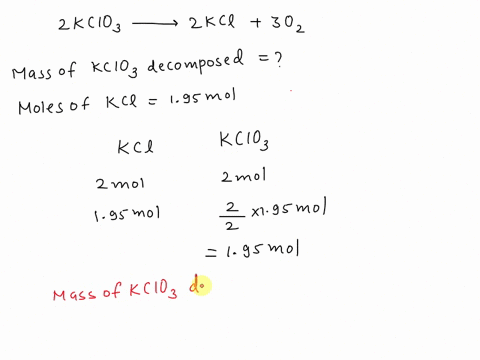 2KClO₃ ⟶ 2KCl + 3O₂
Mass of KClO₃ decomposed = ?
Moles of KCl = 1.95 mol
KCl KClO₃
2 mol 2 mol
1.95 mol 2/2 × 1.95 mol
= 1.95 mol
Mass of KClO₃ do